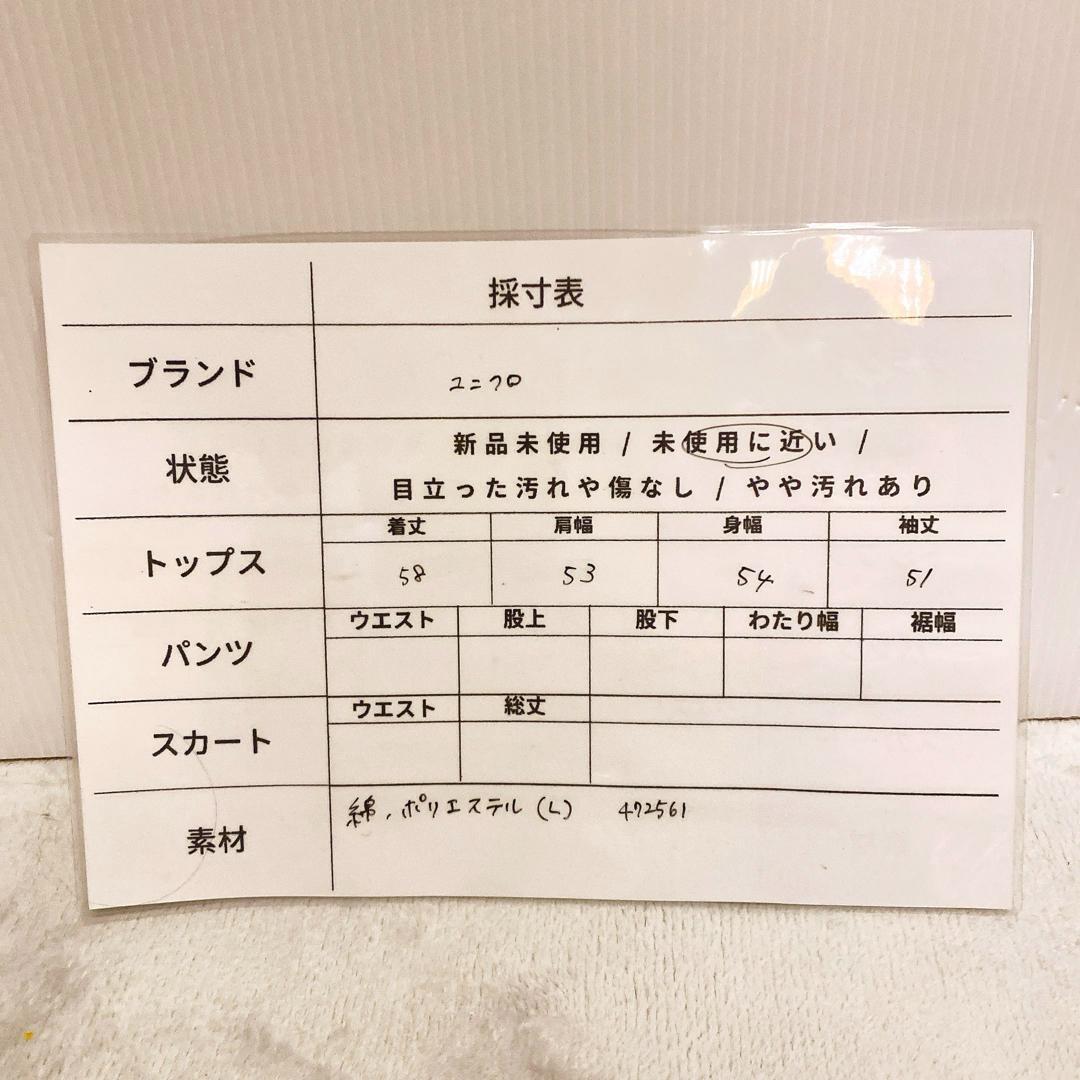 採寸表
ブランド ユニクロ
状態 新品未使用 / 未使用に近い /
目立った汚れや傷なし / やや汚れあり
トップス 着丈 肩幅 身幅 袖丈
58 53 54 51
パンツ ウエスト 股上 股下 わたり幅 裾幅
スカート ウエスト 総丈
素材 綿、ポリエステル (L) 472561